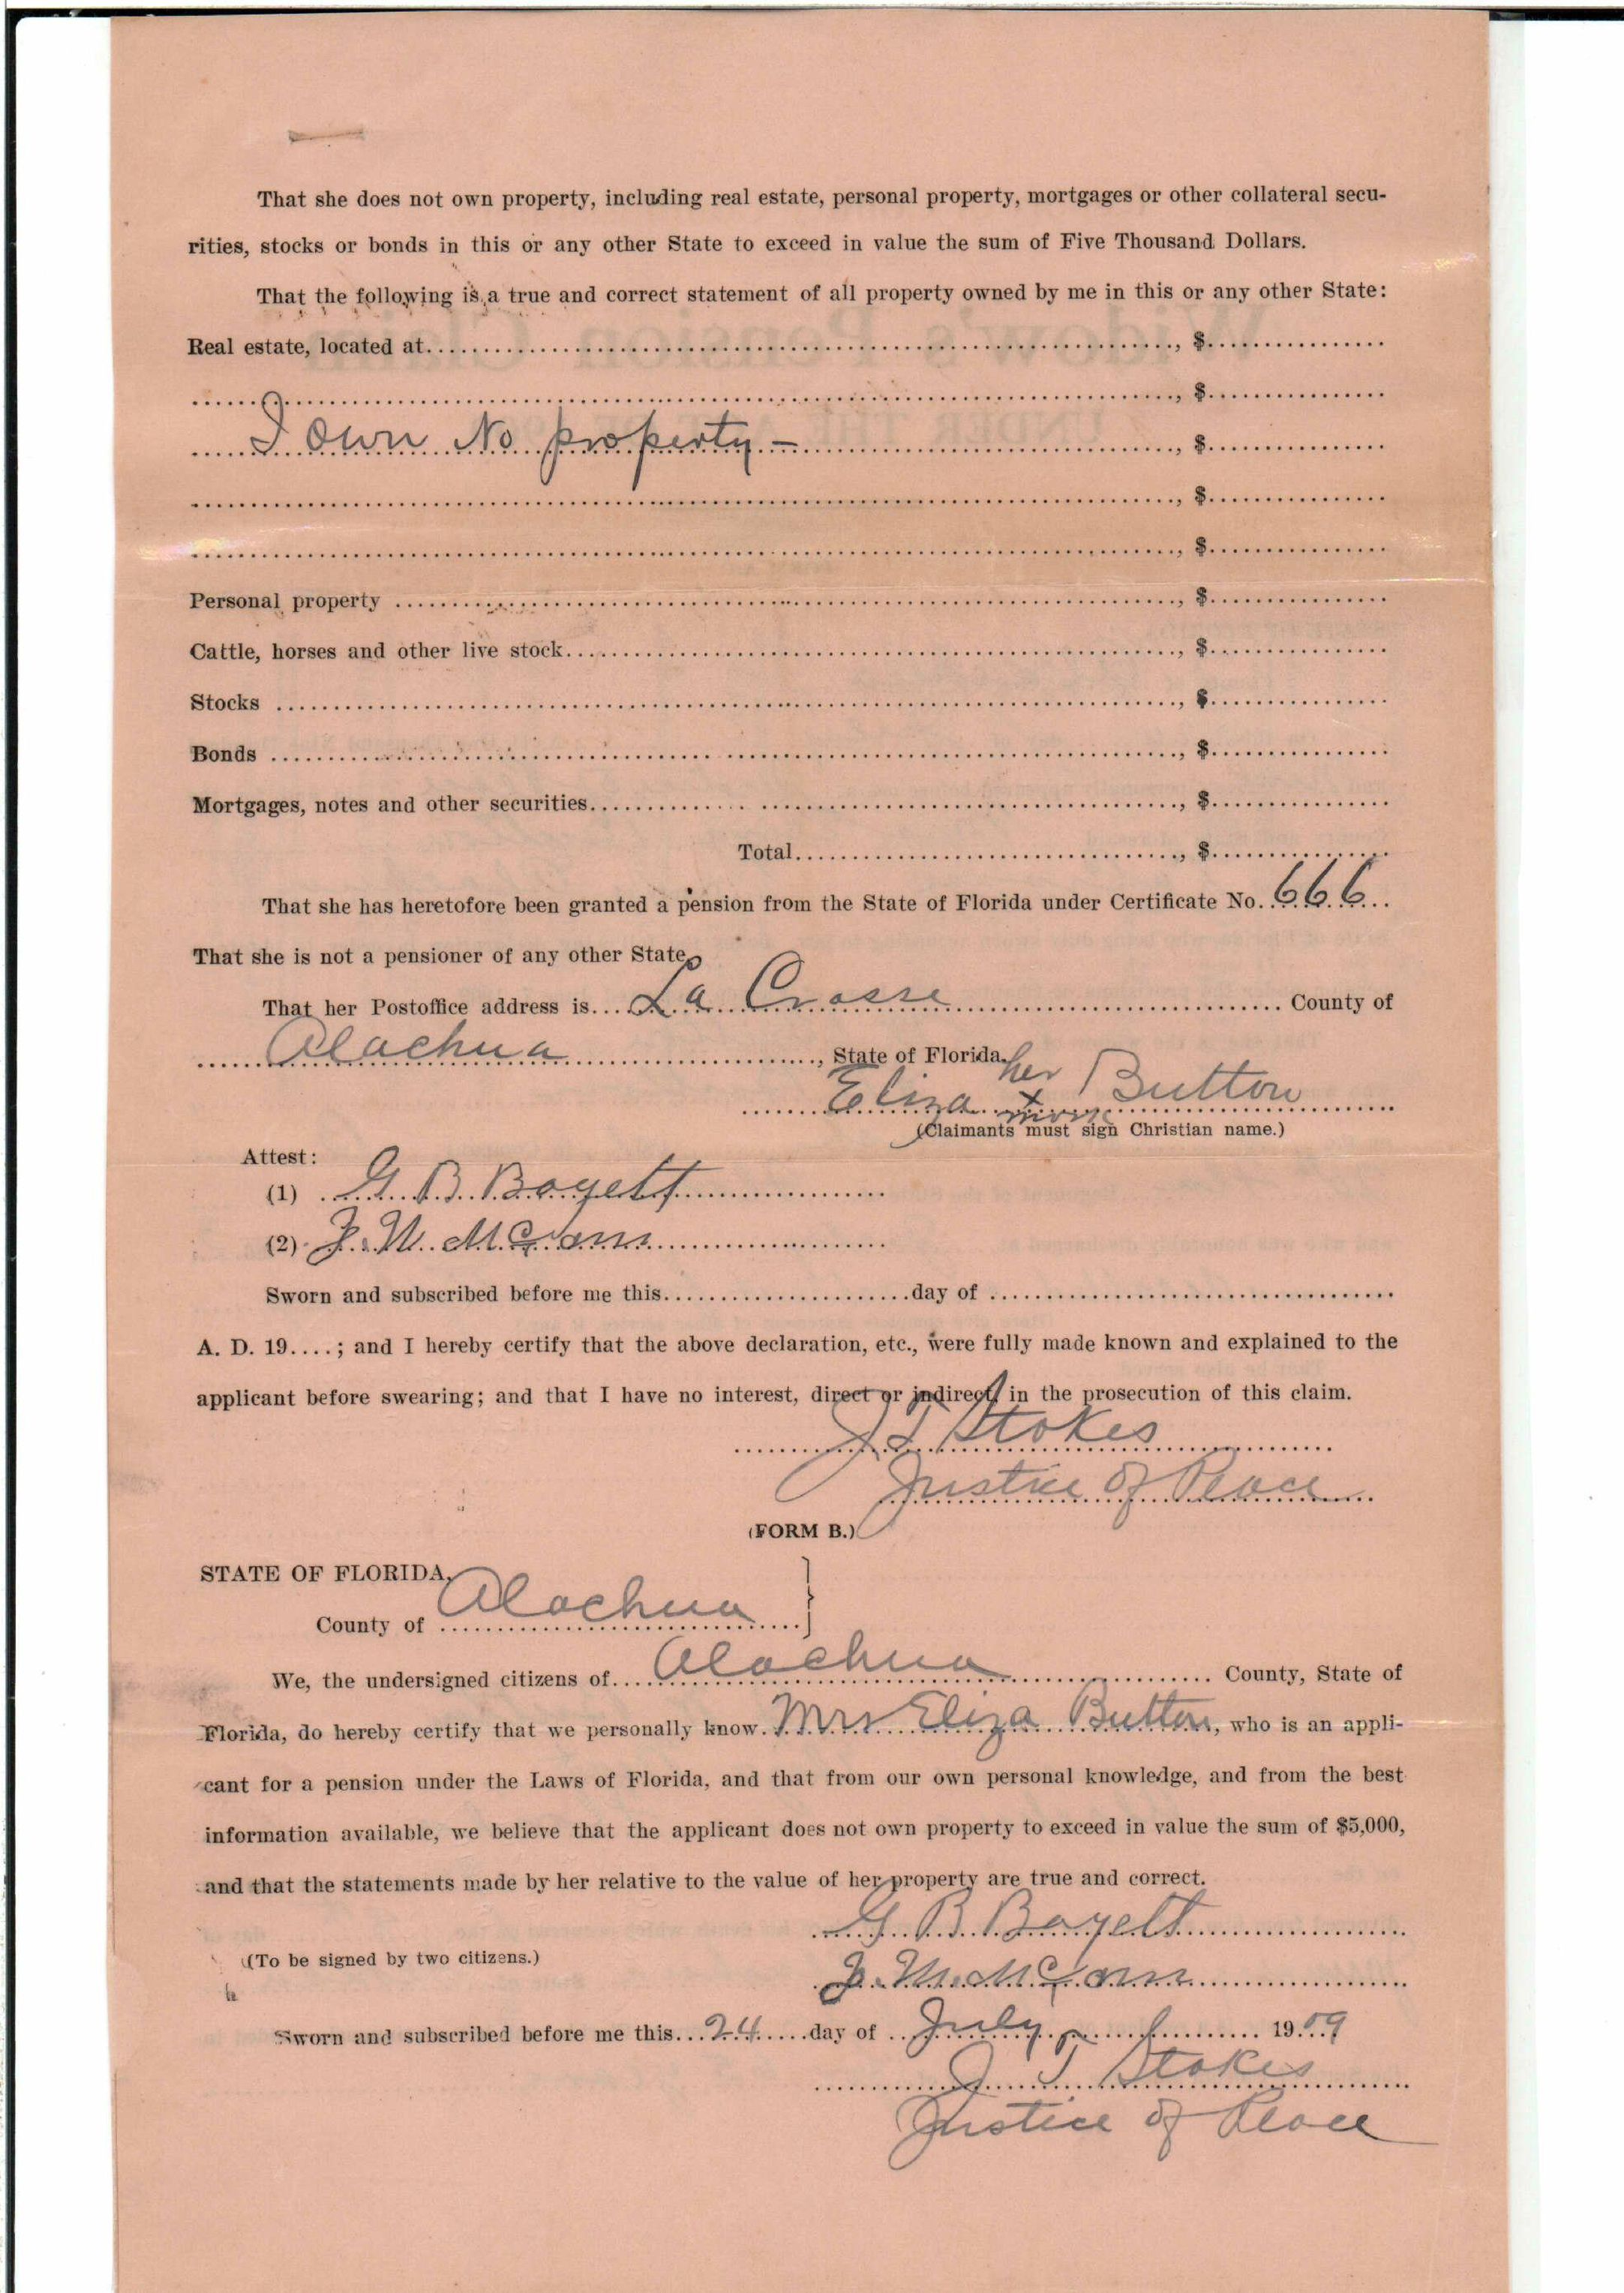 That she does not own property, including real estate, personal property, mortgages or other collateral secu-
rities, stocks or bonds in this or any other State to exceed in value the sum of Five Thousand Dollars.
That the following is a true and correct statement of all property owned by me in this or any other State:
Real estate, located at..............................................., $................
..............................................., $................
I Own No property –..............................................., $................
..............................................., $................
..............................................., $................
Personal property ..............................................., $................
Cattle, horses and other live stock..............................................., $................
Stocks ..............................................., $................
Bonds ..............................................., $................
Mortgages, notes and other securities..............................................., $................
Total..............................................., $................
That she has heretofore been granted a pension from the State of Florida under Certificate No. 666
That she is not a pensioner of any other State.
That her Postoffice address is... La Crosse ........ County of
Alachua ........, State of Florida.
her
Eliza x Button
mark
(Claimants must sign Christian name.)
Attest:
(1) G. B. Boyett
(2) J. W. McCann
Sworn and subscribed before me this........................day of ................................
A. D. 19....; and I hereby certify that the above declaration, etc., were fully made known and explained to the
applicant before swearing; and that I have no interest, direct or indirect, in the prosecution of this claim.
J I Stokes
Justice of Peace
(FORM B.)
STATE OF FLORIDA,
County of Alachua
We, the undersigned citizens of.... Alachua ........ County, State of
Florida, do hereby certify that we personally know. Mrs Eliza Button, who is an appli-
cant for a pension under the Laws of Florida, and that from our own personal knowledge, and from the best
information available, we believe that the applicant does not own property to exceed in value the sum of $5,000,
and that the statements made by her relative to the value of her property are true and correct.
G. B. Boyett
(To be signed by two citizens.)
J. W. McCann
Sworn and subscribed before me this...24.....day of ..July........ 1909
J I Stokes
Justice of Peace